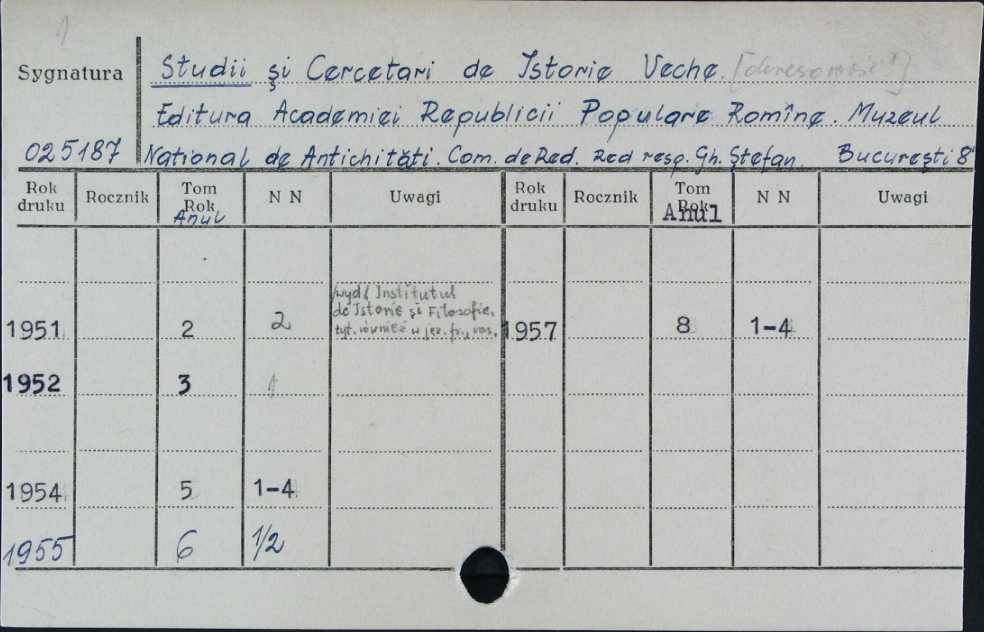 1
Sygnatura
Studii şi Cercetari de Istorie Veche.
Editura Academiei Republicii Populare Romîne. Muzeul
025187 National de Antichităţi. Com. de Red. Red resp. Gh. Ştefan. Bucureşti 8°
Rok druku Rocznik Tom Rok Anul N N Uwagi Rok druku Rocznik Tom Rok Anul N N Uwagi
/wyd/ Institutul
de Istorie şi Filosofie,
tyt. również w jęz. fr., ros.
1951 2 2 1957 8 1-4
1952 3 1
1954 5 1-4
1955 6 1/2